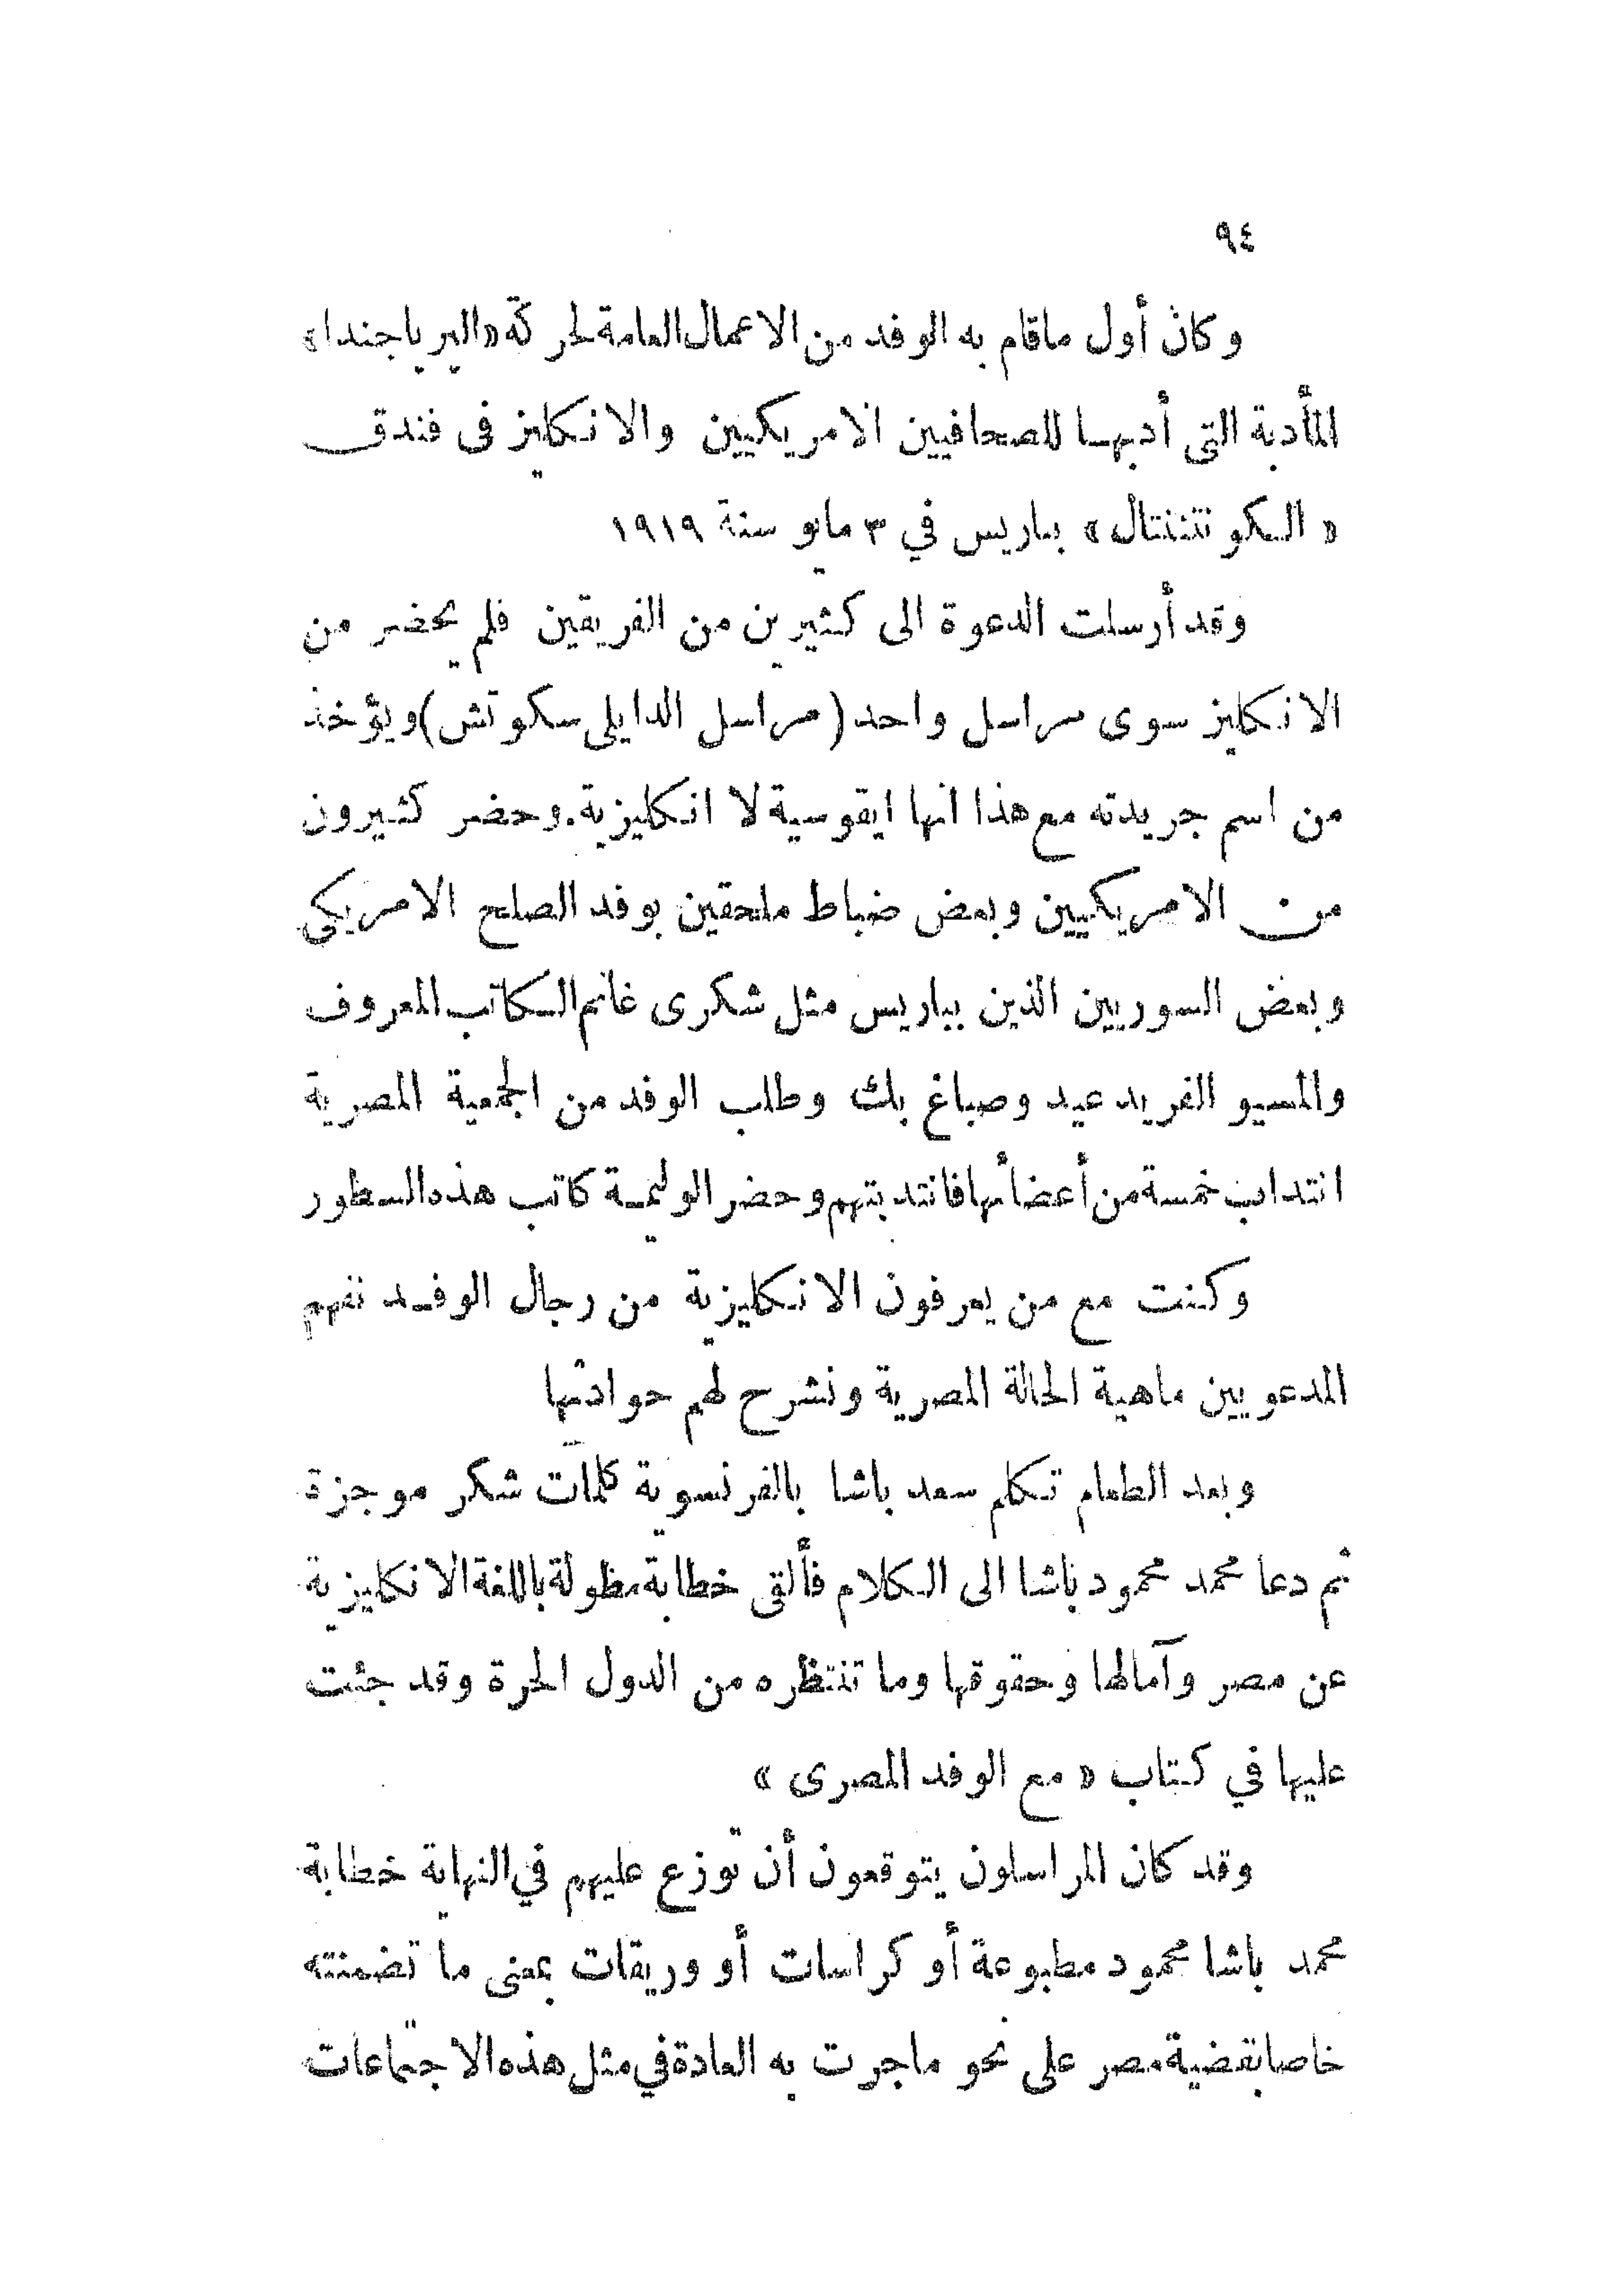 ٩٤
وكان أول ماقام به الوفد من الاعمال العامة لحركة «البرباجندا»
المأدبة التى أدبها للصحافيين الامريكيين والانكليز فى فندق
« الكونتننتال » بباريس في ٣ مايو سنة ١٩١٩
وقد أرسلت الدعوة الى كثيرين من الفريقين فلم يحضر من
الانكليز سوى مراسل واحد (مراسل الدايلى سكوتش) ويؤخذ
من اسم جريدته مع هذا انها ايقوسية لا انكليزية. وحضر كثيرون
من الامريكيين وبعض ضباط ملحقين بوفد الصلح الامريكى
وبعض السوريين الذين بباريس مثل شكرى غانم الكاتب المعروف
والمسيو الفريد عيد وصباغ بك وطلب الوفد من الجمعية المصرية
انتداب خمسة من أعضائها فانتدبتهم وحضر الوليمة كاتب هذه السطور
وكنت مع من يعرفون الانكليزية من رجال الوفد نفهم
المدعويين ماهية الحالة المصرية ونشرح لهم حوادثها
وبعد الطعام تكلم سعد باشا بالفرنسوية كلمات شكر موجزة
ثم دعا محمد محمود باشا الى الكلام فألقى خطابة مطولة باللغة الانكليزية
عن مصر وآمالها وحقوقها وما تنتظره من الدول الحرة وقد جئت
عليها في كتاب « مع الوفد المصرى »
وقد كان المراسلون يتوقعون أن توزع عليهم في النهاية خطابة
محمد باشا محمود مطبوعة أو كراسات أو وريقات بمعنى ما تضمنته
خاصا بقضية مصر على نحو ماجرت به العادة في مثل هذه الاجتماعات